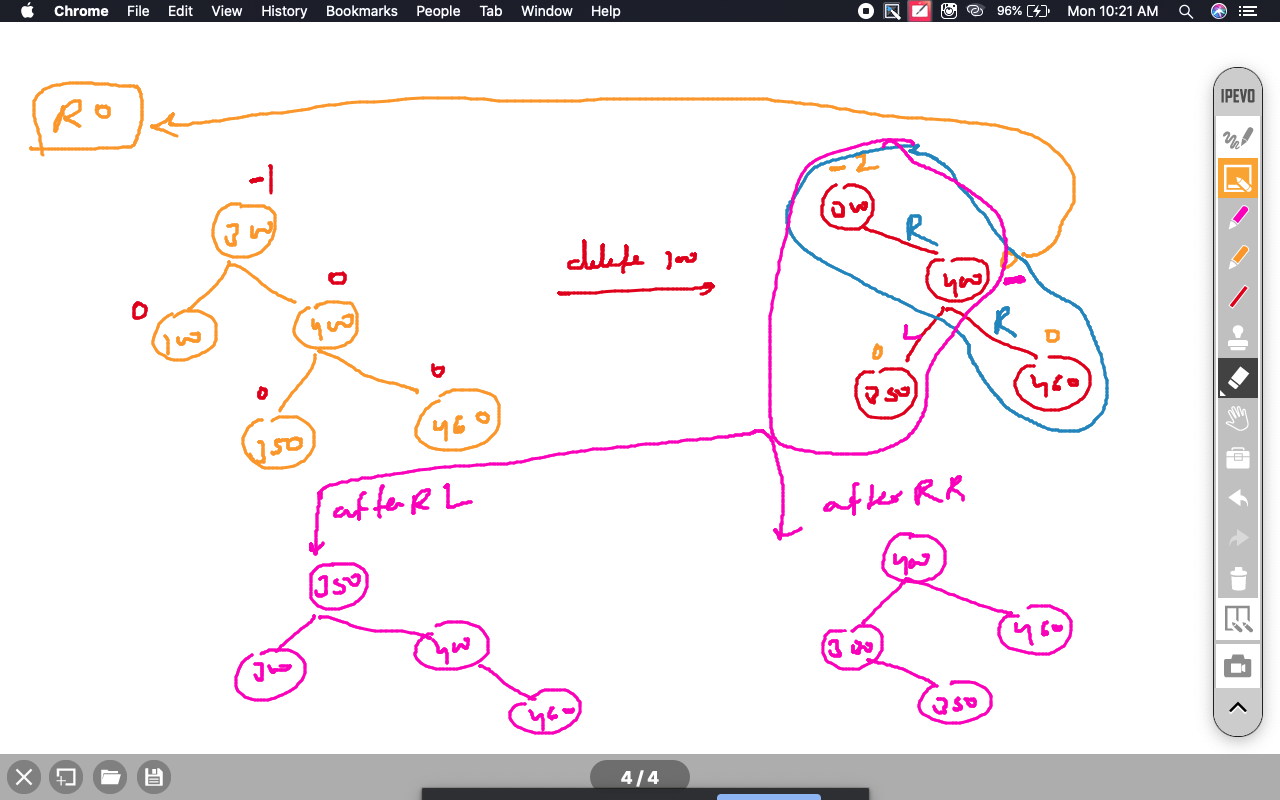 Chrome File Edit View History Bookmarks People Tab Window Help 96% Mon 10:21 AM
IPEVO
R 0
-1
300
0
100
0
400
0
350
0
460
delete 100
-2
300
R
400
-
L
R
0
350
0
460
after RL
350
300
400
460
after RR
400
300
460
350
4 / 4